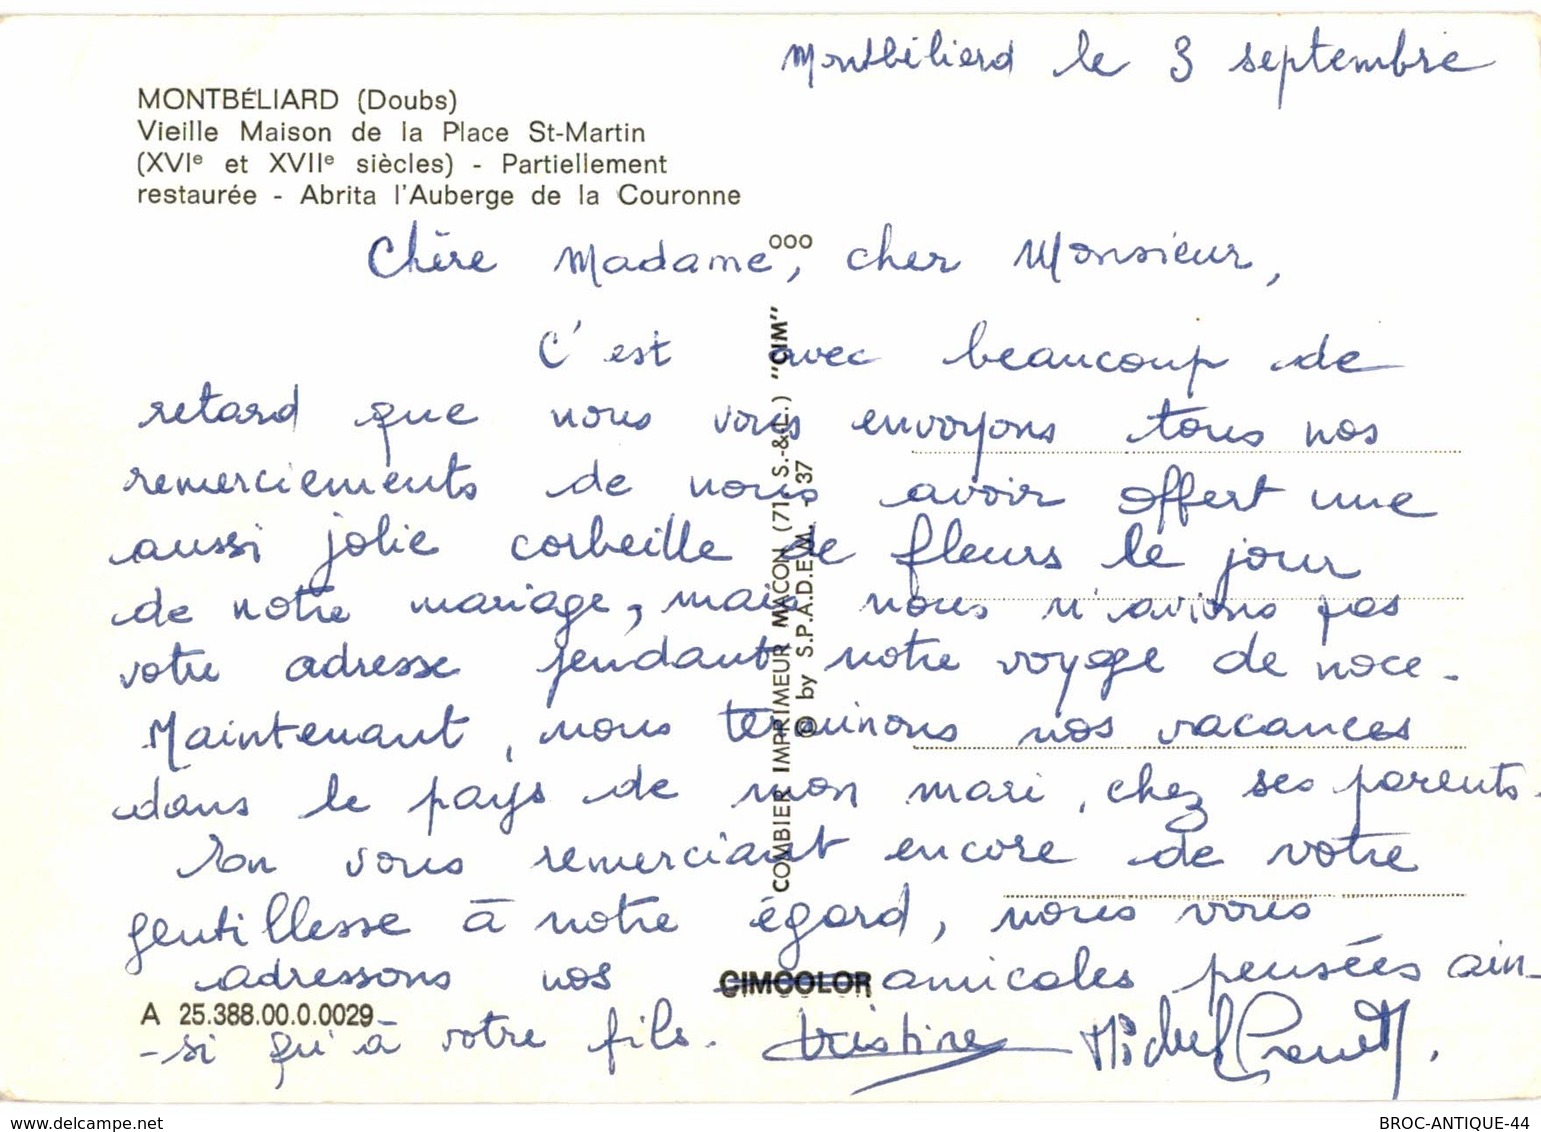 Montbéliard le 3 septembre
MONTBÉLIARD (Doubs)
Vieille Maison de la Place St-Martin
(XVIe et XVIIe siècles) - Partiellement
restaurée - Abrita l'Auberge de la Couronne
ooo
Chère Madame, cher Monsieur,
C'est avec beaucoup de
retard que nous vous envoyons tous nos
remerciements de nous avoir offert une
aussi jolie corbeille de fleurs le jour
de notre mariage, mais nous n'avions pas
votre adresse pendant notre voyage de noce.
Maintenant, nous terminons nos vacances
dans le pays de mon mari, chez ses parents.
En vous remerciant encore de votre
gentillesse à notre égard, nous vous
adressons nos amicales pensées ain-
-si qu'à votre fils. Christine Michel
COMBIER IMPRIMEUR MACON (71. S.-&-L.) "CIM"
© by S.P.A.D.E.M. - 37
CIMCOLOR
A 25.388.00.0.0029
delcampe.net
BROC-ANTIQUE-44